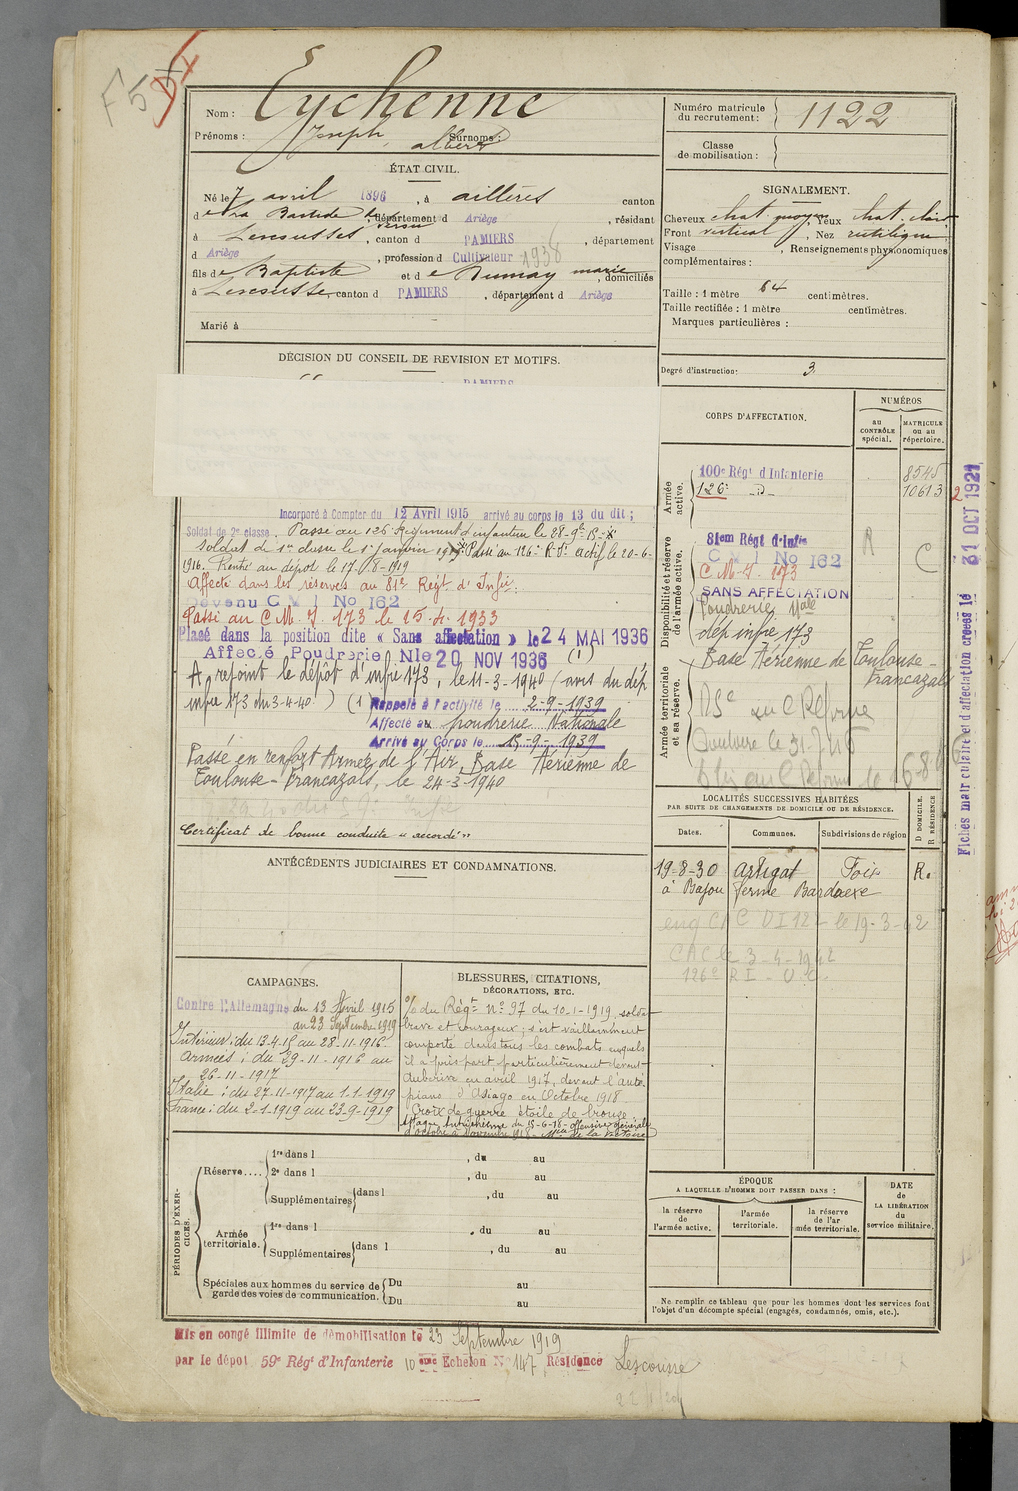 F 5
Nom : Eychenne
Prénoms : Joseph, albert Surnoms :
Numéro matricule du recrutement : 1122
Classe de mobilisation :
ÉTAT CIVIL.
Né le 7 avril 1896, à aillères canton
de La Bastide département d Ariège, résidant
à Lescousses, canton d PAMIERS, département
d Ariège, profession d Cultivateur 1938
fils de Baptiste et de Dumay marie, domiciliés
à Lescousse, canton d PAMIERS, département d Ariège
Marié à
SIGNALEMENT.
Cheveux chat. moyen Yeux chat. clair
Front vertical, Nez rectiligne
Visage , Renseignements physionomiques
complémentaires :
Taille : 1 mètre 64 centimètres.
Taille rectifiée : 1 mètre centimètres.
Marques particulières :
Degré d'instruction : 3
DÉCISION DU CONSEIL DE REVISION ET MOTIFS.
PAMIERS
Incorporé à Compter du 12 Avril 1915 arrivé au corps le 13 du dit ;
Soldat de 2e classe. Passé au 126e Régiment d'infanterie le
Soldat de 1re classe le 1er janvier Passé au 126e R.I. actif le 20-6-
1916. Rentré au dépôt le 17-8-1919
Affecté dans les réserves au 81e Régt d'Infie :
Devenu C M I No 162
Passé au C.M.I. 173 le 25.4.1933
Plasé dans la position dite « Sans affectation » le 24 MAI 1936
Affecé Poudrerie Nle 20 NOV 1936 (1)
A rejoint le dépôt d'infie 173, le 11-3-1940 (avis du dép
infie 173 du 3-4-40) (1) Rappelé à l'activité le 2-9-1939
Affecté au poudrerie Nationale
Arrivé au Corps le 15-9-1939
Passé en renfort Armée de l'Air, Base Aérienne de
Toulouse-Francazals, le 24-3-1940
Certificat de bonne conduite « accordé »
CORPS D'AFFECTATION.
NUMÉROS
au CONTRÔLE spécial.
MATRICULE ou au répertoire.
Armée active.
100e Régt d'Infanterie 8545
126e _d_ 10613
Disponibilité et réserve de l'armée active.
81em Régt d'Infie R
C M I No 162 C
C.M.I. 173
SANS AFFECTATION
Poudrerie Nale
dép infie 173
Armée territoriale et sa réserve.
Base Aérienne de Toulouse-
Francazals
Fiches matriculaire et d'affectation créées le 31 OCT 1921
ANTÉCÉDENTS JUDICIAIRES ET CONDAMNATIONS.
LOCALITÉS SUCCESSIVES HABITÉES
PAR SUITE DE CHANGEMENTS DE DOMICILE OU DE RÉSIDENCE.
D DOMICILE. R RÉSIDENCE
Dates. Communes. Subdivisions de région
19-8-30 artigat Foix R.
à Bajou ferme Bardaexe
CAC le 3-4-1942
126e R I
CAMPAGNES.
Contre l'Allemagne du 13 Avril 1915
au 23 Septembre 1919
Intérieur : du 13-4-15 au 28-11-1916
armées : du 29-11-1916 au
26-11-1917
Italie : du 27-11-1917 au 1-1-1919
France : du 2-1-1919 au 23-9-1919
BLESSURES, CITATIONS,
DÉCORATIONS, ETC.
% du Régt No 97 du 10-1-1919, soldat
brave et courageux ; s'est vaillamment
comporté dans tous les combats auxquels
il a pris part particulièrement devant
Aubérive en avril 1917, devant l'alto-
piano d'Asiago en Octobre 1918
Croix de guerre étoile de bronze
Attaque Autrichienne du 15-6-18 - offensive générale
d'octobre à novembre 1918 - Mlle de la Victoire
PÉRIODES D'EXERCICES.
Réserve.... 1re dans l , du au
2e dans l , du au
Supplémentaires dans l , du au
Armée territoriale. 1re dans l , du au
Supplémentaires dans l , du au
Spéciales aux hommes du service de garde des voies de communication. Du au
Du au
ÉPOQUE
A LAQUELLE L'HOMME DOIT PASSER DANS :
la réserve de l'armée active.
l'armée territoriale.
la réserve de l'armée territoriale.
DATE de LA LIBÉRATION du service militaire.
Ne remplir ce tableau que pour les hommes dont les services font
l'objet d'un décompte spécial (engagés, condamnés, omis, etc.).
Mis en congé illimité de démobilisation le 23 Septembre 1919
par le dépôt 59e Régt d'Infanterie 10 ème Echelon No 147 Résidence Lescousse